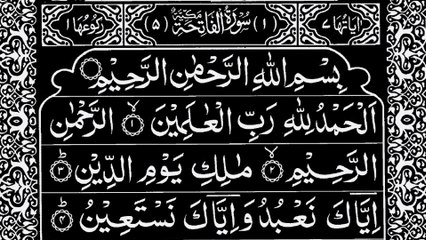 اٰیَاتُهَا ۷ (۱) سُوْرَةُ الْفَاتِحَةِ مَكِّيَّةٌ (۵) رُكُوْعُهَا ۱
بِسْمِ اللّٰهِ الرَّحْمٰنِ الرَّحِيْمِ
اَلْحَمْدُ لِلّٰهِ رَبِّ الْعٰلَمِيْنَ ۙ۱ الرَّحْمٰنِ
الرَّحِيْمِ ۙ۲ مٰلِكِ يَوْمِ الدِّيْنِ ؕ۳
اِيَّاكَ نَعْبُدُ وَاِيَّاكَ نَسْتَعِيْنُ ؕ۴